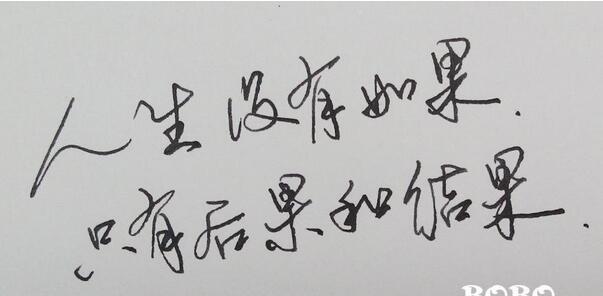 人生没有如果.
只有后果和结果.
BOBO